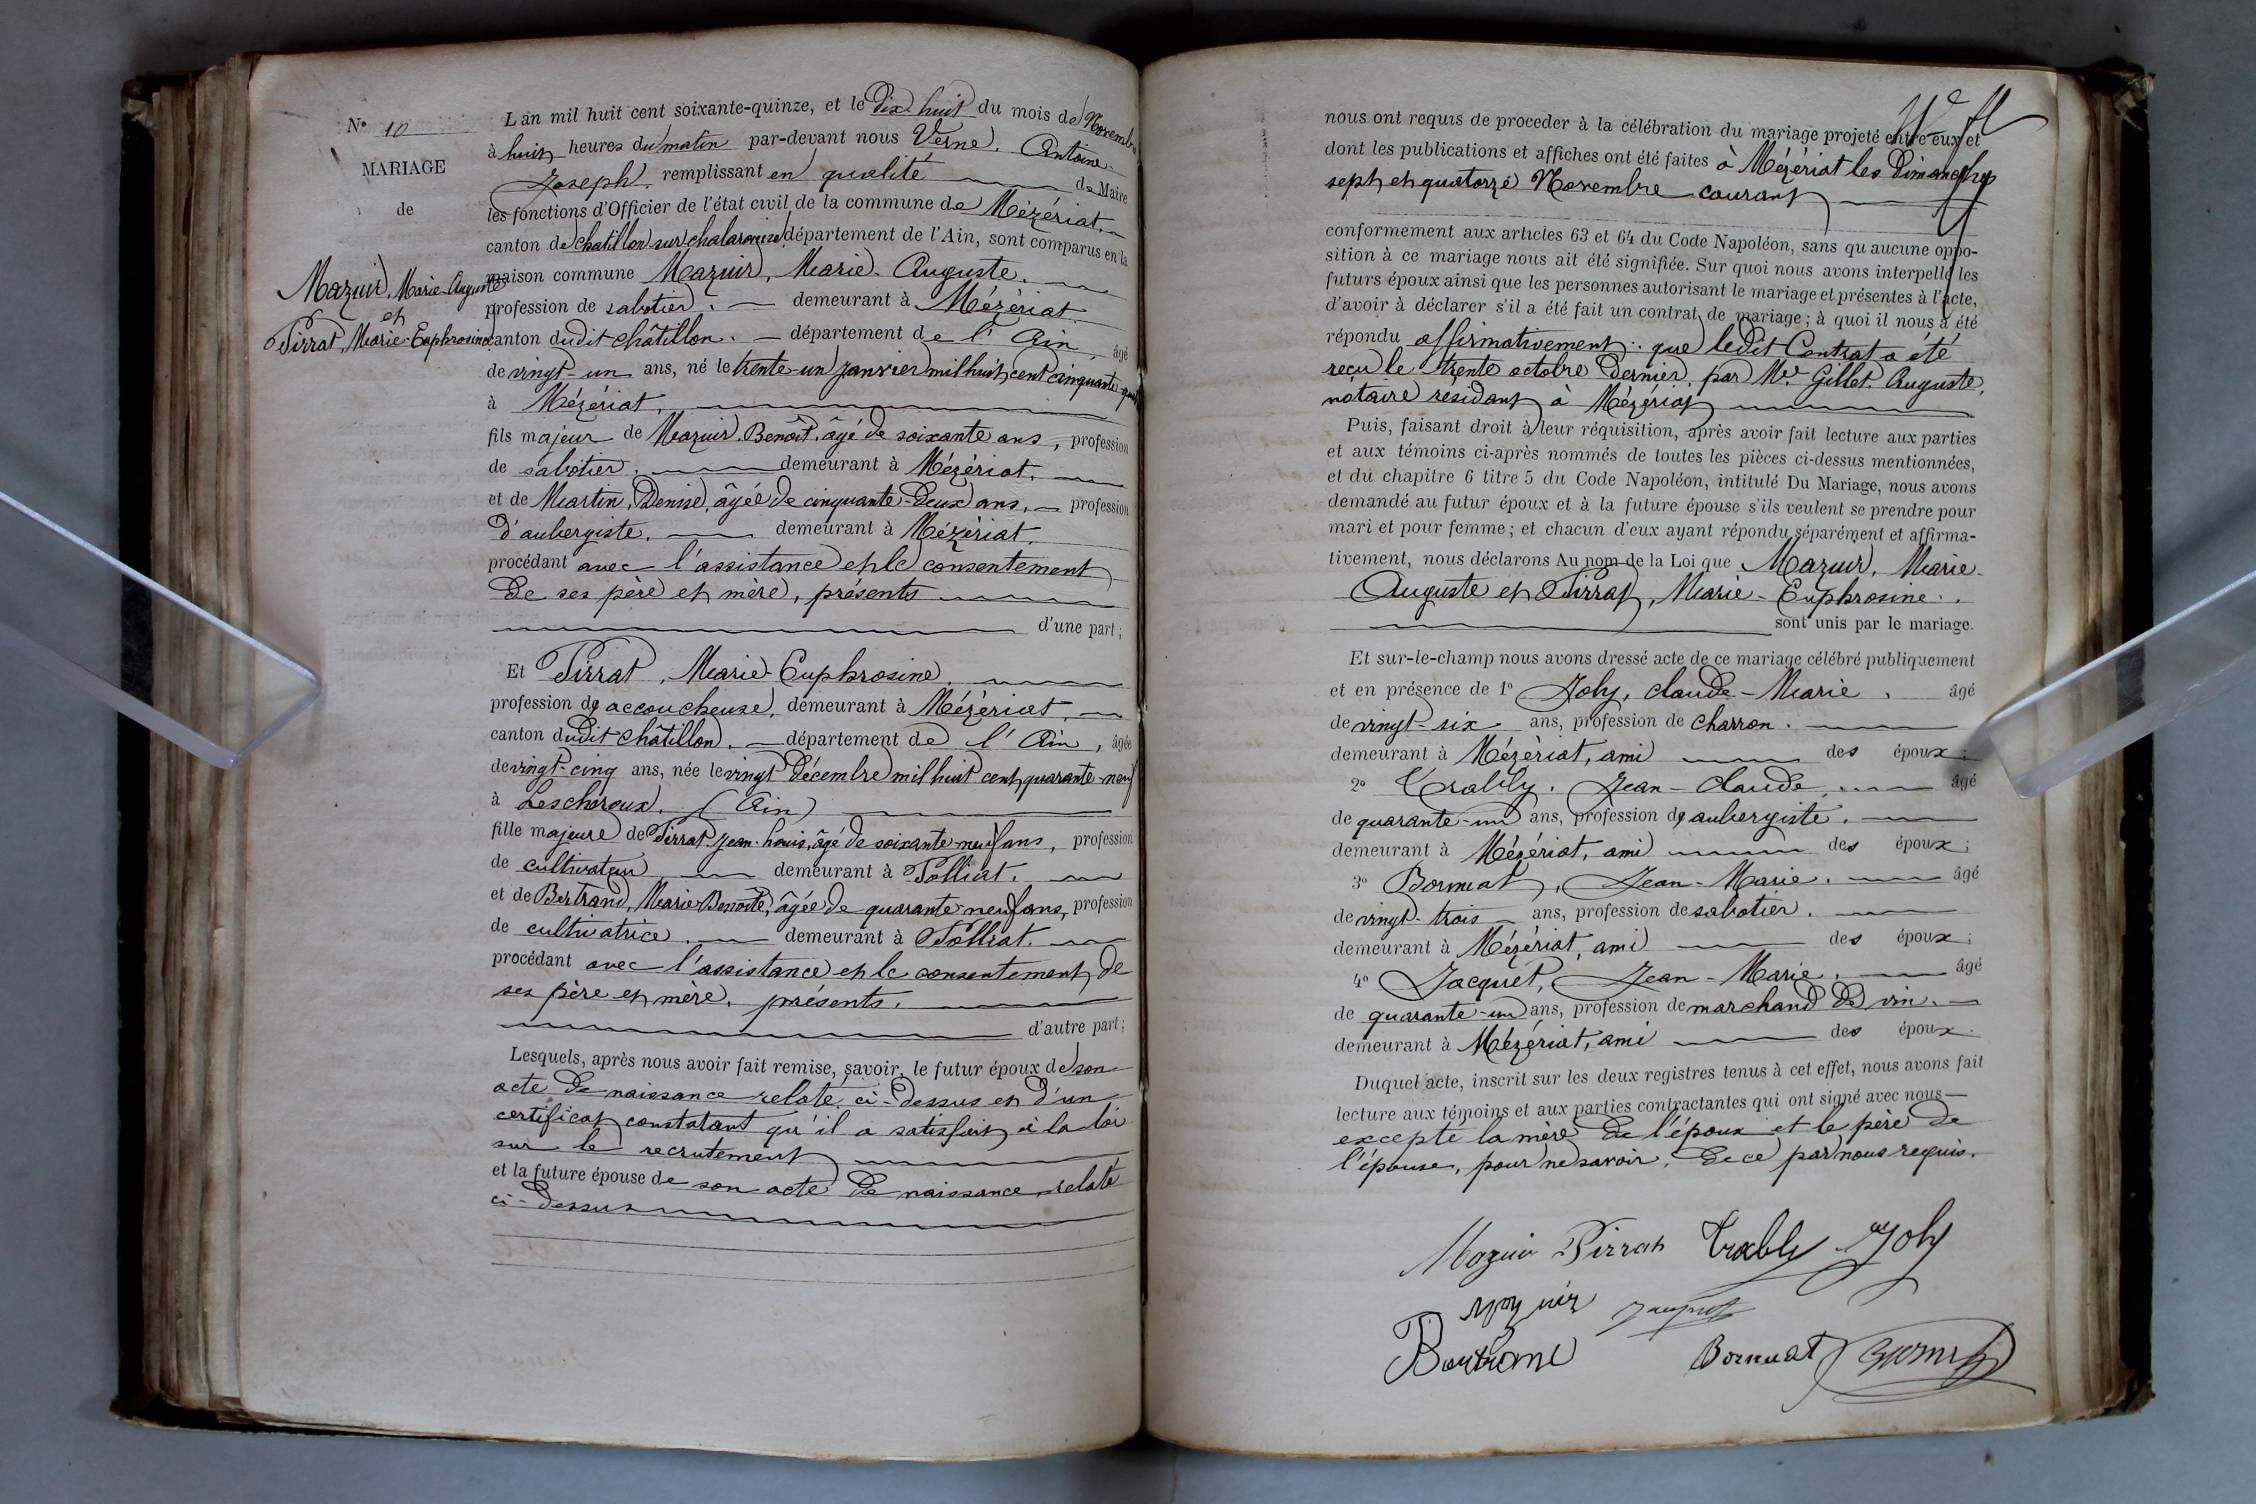 N° 10
MARIAGE
de
Mazuir, Marie-Auguste
et
Pirrat, Marie-Euphrosine
L'an mil huit cent soixante-quinze, et le Dix-huit du mois de Novembre
à huit heures du matin par-devant nous Verne, Antoine-
Joseph, remplissant en qualité de Maire
les fonctions d'Officier de l'état civil de la commune de Mézériat,
canton de chatillon sur chalaronne département de l'Ain, sont comparus en la
maison commune Mazuir, Marie-Auguste,
profession de sabotier, demeurant à Mézériat
canton dudit châtillon, département de l'Ain, âgé
de vingt-un ans, né le trente-un janvier mil huit cent cinquante-quatre
à Mézériat,
fils majeur de Mazuir, Benoît, âgé de soixante ans, profession
de sabotier, demeurant à Mézériat,
et de Martin, Denise, âgée de cinquante-deux ans, profession
d'aubergiste, demeurant à Mézériat,
procédant avec l'assistance et le consentement
de ses père et mère, présents
d'une part;
Et Pirrat, Marie-Euphrosine,
profession d'accoucheuse, demeurant à Mézériat,
canton dudit châtillon, département de l'Ain, âgée
de vingt-cinq ans, née le vingt Décembre mil huit cent quarante-neuf
à Lescheroux, (Ain)
fille majeure de Pirrat, Jean-Louis, âgé de soixante-neuf ans, profession
de cultivateur, demeurant à Polliat,
et de Bertrand, Marie-Benoîte, âgée de quarante-neuf ans, profession
de cultivatrice, demeurant à Polliat,
procédant avec l'assistance et le consentement de
ses père et mère, présents,
d'autre part;
Lesquels, après nous avoir fait remise, savoir, le futur époux de son
acte de naissance relaté ci-dessus et d'un
certificat constatant qu'il a satisfait à la loi
sur le recrutement
et la future épouse de son acte de naissance relaté
ci-dessus
nous ont requis de proceder à la célébration du mariage projeté entre eux et
dont les publications et affiches ont été faites à Mézériat les Dimanches
sept et quatorze Novembre courant
conformement aux articles 63 et 64 du Code Napoléon, sans qu'aucune oppo-
sition à ce mariage nous ait été signifiée. Sur quoi nous avons interpellé les
futurs époux ainsi que les personnes autorisant le mariage et présentes à l'acte,
d'avoir à déclarer s'il a été fait un contrat de mariage; à quoi il nous a été
répondu affirmativement: que ledit Contrat a été
reçu le trente octobre Dernier, par Me Gillet, Auguste,
notaire résidant à Mézériat
Puis, faisant droit à leur réquisition, après avoir fait lecture aux parties
et aux témoins ci-après nommés de toutes les pièces ci-dessus mentionnées,
et du chapitre 6 titre 5 du Code Napoléon, intitulé Du Mariage, nous avons
demandé au futur époux et à la future épouse s'ils veulent se prendre pour
mari et pour femme; et chacun d'eux ayant répondu séparément et affirma-
tivement, nous déclarons Au nom de la Loi que Mazuir, Marie-
Auguste et Pirrat, Marie-Euphrosine.
sont unis par le mariage.
Et sur-le-champ nous avons dressé acte de ce mariage célébré publiquement
et en présence de 1° Joly, claude-Marie, âgé
de vingt-six ans, profession de charron,
demeurant à Mézériat, ami des époux;
2° Trably, Jean-claude, âgé
de quarante-un ans, profession d'aubergiste,
demeurant à Mézériat, ami des époux;
3° Bornuat, Jean-Marie, âgé
de vingt-trois ans, profession de sabotier,
demeurant à Mézériat, ami des époux;
4° Jacquet, Jean-Marie, âgé
de quarante-un ans, profession de marchand de vin,
demeurant à Mézériat, ami des époux.
Duquel acte, inscrit sur les deux registres tenus à cet effet, nous avons fait
lecture aux témoins et aux parties contractantes qui ont signé avec nous
excepté la mère de l'époux et le père de
l'épouse, pour ne savoir, de ce par nous requis.
Mazuir Pirrat Trably Joly
Mazuir Jacquet
Bertrand Bornuat